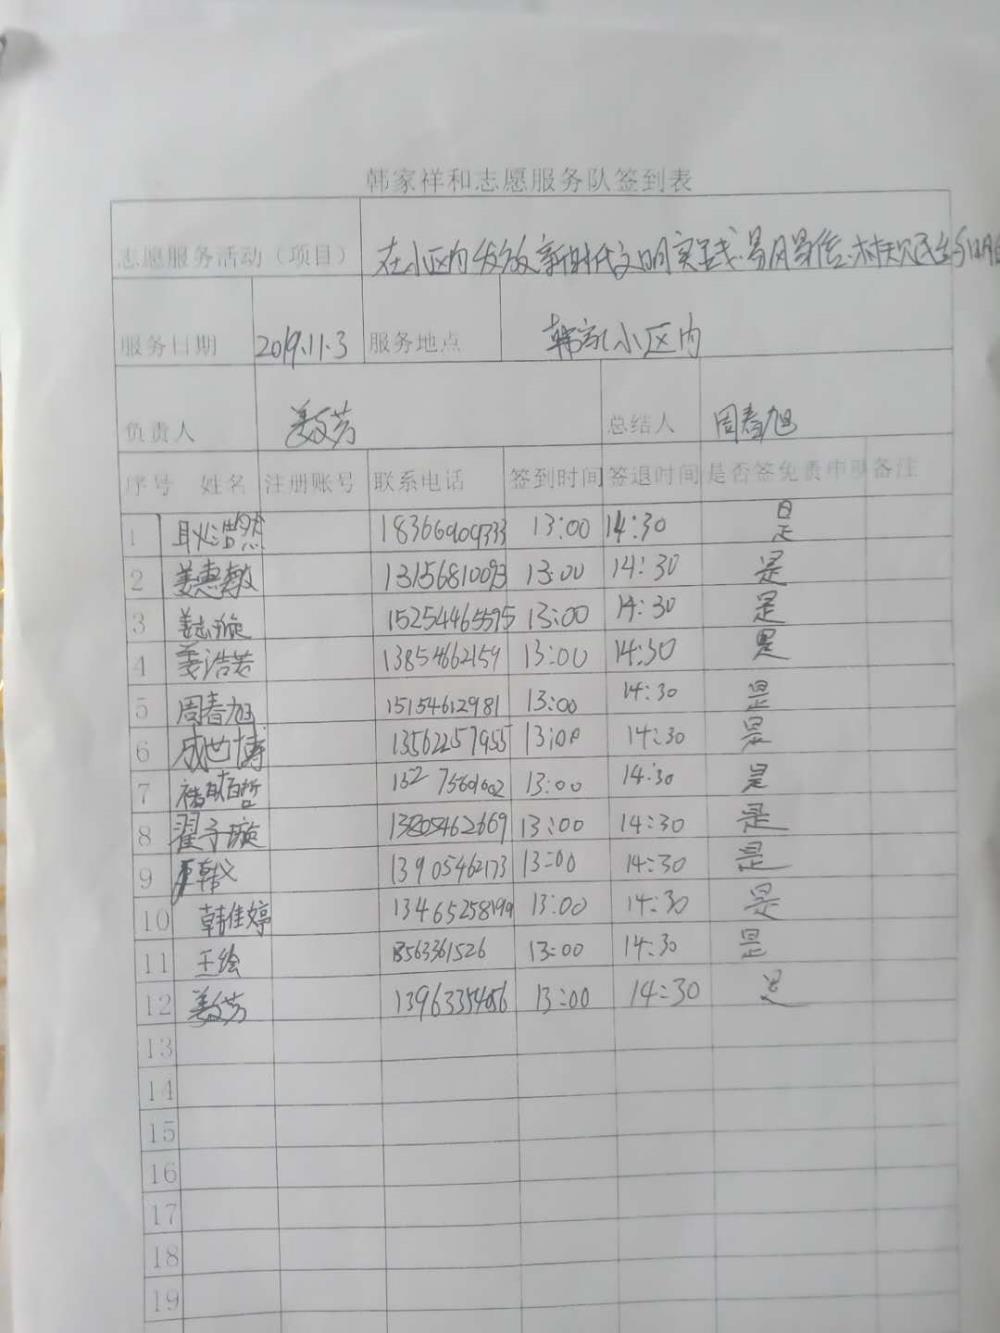 韩家祥和志愿服务队签到表
志愿服务活动（项目） 在小区内发放新时代文明实践、易风易俗
服务日期 2019.11.3 服务地点 韩家小区内
负责人 姜文芳 总结人 周春旭
序号 姓名 注册账号 联系电话 签到时间 签退时间 是否签免责申明 备注
1 耿浩然 18366909333 13:00 14:30 是
2 姜惠敏 13156810093 13:00 14:30 是
3 姜志旋 15254465595 13:00 14:30 是
4 姜浩若 13854662159 13:00 14:30 是
5 周春旭 15154612981 13:00 14:30 是
6 成世博 13562257955 13:00 14:30 是
7 13:00 14:30 是
8 翟子璇 13805462669 13:00 14:30 是
9 13905462173 13:00 14:30 是
10 韩佳婷 13465258199 13:00 14:30 是
11 王绘 18563361526 13:00 14:30 是
12 姜文芳 13:00 14:30 是
13
14
15
16
17
18
19